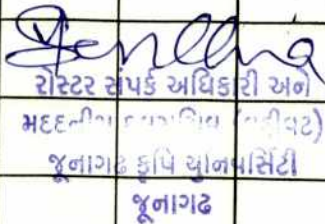 રોસ્ટર સંપર્ક અધિકારી અને
મદદનીશ (વહીવટ)
જૂનાગઢ કૃષિ યુનિવર્સિટી
જૂનાગઢ